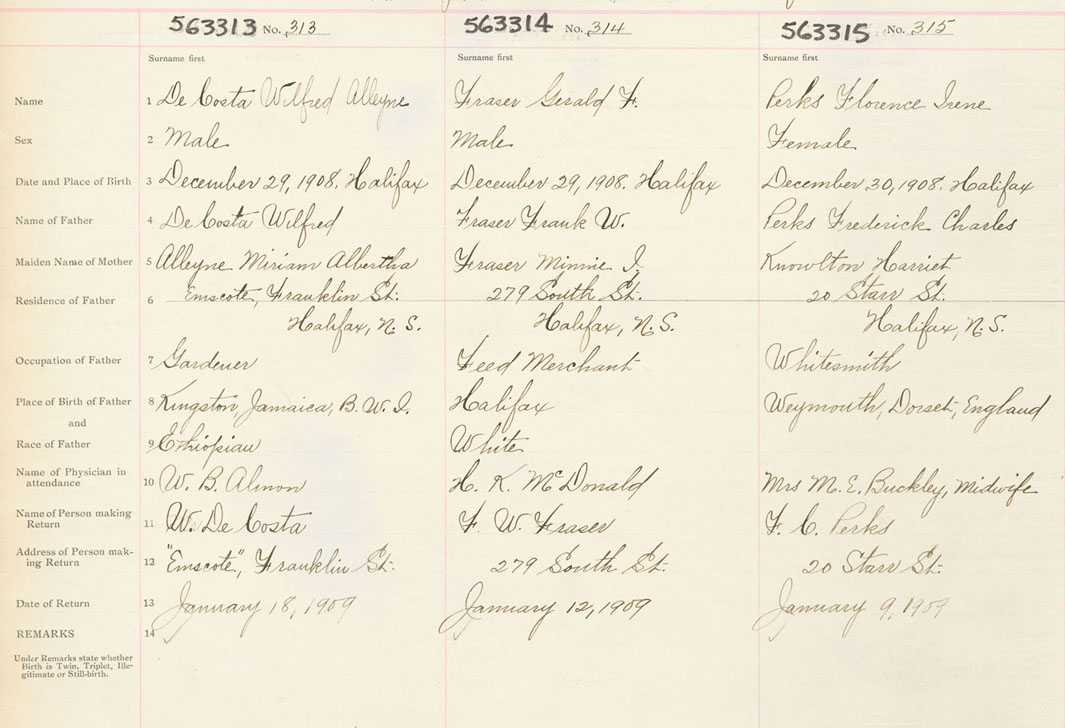 563313 No. 313 563314 No. 314 563315 No. 315
Surname first Surname first Surname first
Name 1 De Costa Wilfred Alleyne Fraser Gerald F. Perks Florence Irene
Sex 2 Male Male Female
Date and Place of Birth 3 December 29, 1908. Halifax December 29, 1908. Halifax December 30, 1908. Halifax
Name of Father 4 De Costa Wilfred Fraser Frank W. Perks Frederick Charles
Maiden Name of Mother 5 Alleyne Miriam Albertha Fraser Minnie I. Knowlton Harriet
Residence of Father 6 Emscote, Franklin St. 279 South St. 20 Starr St.
Halifax, N. S. Halifax, N. S. Halifax, N. S.
Occupation of Father 7 Gardener Feed Merchant Whitesmith
Place of Birth of Father 8 Kingston, Jamaica, B. W. I. Halifax Weymouth, Dorset, England
and
Race of Father 9 Ethiopian White
Name of Physician in
attendance 10 W. B. Almon H. K. McDonald Mrs M. E. Buckley, Midwife
Name of Person making
Return 11 W. De Costa F. W. Fraser F. C. Perks
Address of Person mak-
ing Return 12 "Emscote", Franklin St. 279 South St. 20 Starr St.
Date of Return 13 January 18, 1909 January 12, 1909 January 9, 1909
REMARKS 14
Under Remarks state whether
Birth is Twin, Triplet, Ille-
gitimate or Still-birth.